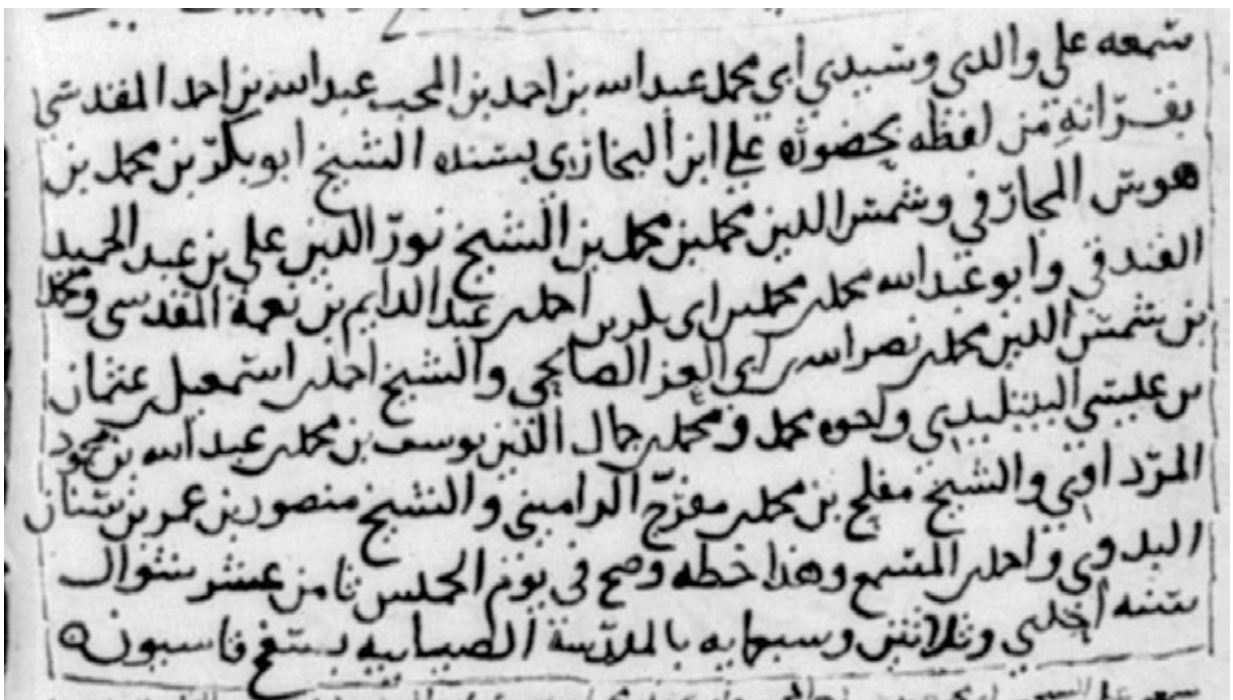 سمعه على والدي وسيدي أبي محمد عبد الله بن احمد بن المحب عبد الله بن احمد المقدسي
بقرائه من لفظه بحضوره على ابن البخاري بسنده الشيخ ابو بكر بن محمد بن
هوس المجارفي وشمس الدين محمد بن محمد بن الشيخ نور الدين علي بن عبد الحميد
الفندقي وابو عبد الله محمد بن محمد بن ابي بكر بن احمد بن عبد الدايم بن نعمة المقدسي ومحمد
بن شمس الدين محمد بن نصر الله بن ابي العز الصالحي والشيخ احمد بن اسمعيل بن عثمان
بن عيسى ولخوه محمد ومحمد بن جمال الدين يوسف بن محمد بن عبد الله بن محمود
المرداوي والشيخ مفلح بن محمد بن مفرج الراميني والشيخ منصور بن عمر بن سنان
البدوي واحمد بن المسمع وهذا خطه وصح في يوم الخميس ثامن عشر شوال
سنه احدي وثلاثين وسبعمايه بالمدرسة الضيايه بسفح قاسيون